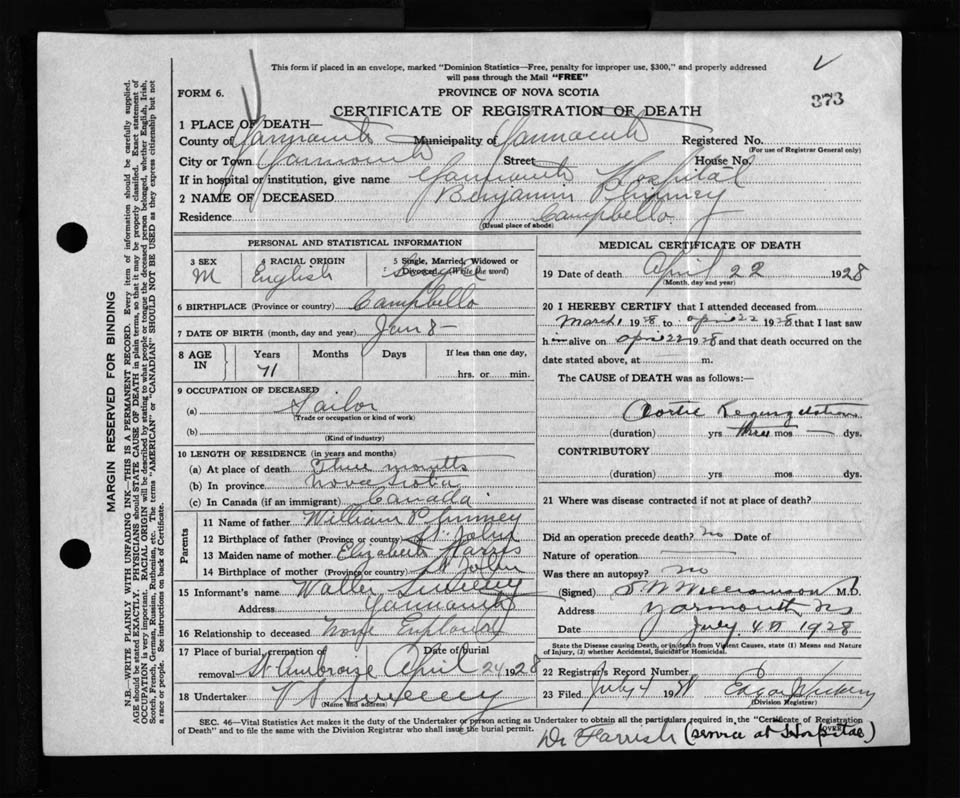 This form if placed in an envelope, marked "Dominion Statistics—Free, penalty for improper use, $300," and properly addressed
will pass through the Mail "FREE"
FORM 6.
PROVINCE OF NOVA SCOTIA
373
CERTIFICATE OF REGISTRATION OF DEATH
1 PLACE OF DEATH—
County of Yarmouth Municipality of Yarmouth Registered No.
(For use of Registrar General only)
City or Town Yarmouth Street House No.
If in hospital or institution, give name Yarmouth Hospital
2 NAME OF DECEASED Benjamin Phinney
Residence Campbello
(Usual place of abode)
PERSONAL AND STATISTICAL INFORMATION
3 SEX 4 RACIAL ORIGIN 5 Single, Married, Widowed or Divorced (Write the word)
M English
6 BIRTHPLACE (Province or country) Campbello
7 DATE OF BIRTH (month, day and year) Jan 8 —
8 AGE IN Years Months Days If less than one day,
71 hrs. or min.
9 OCCUPATION OF DECEASED
(a) Sailor
(Trade or occupation or kind of work)
(b)
(Kind of industry)
10 LENGTH OF RESIDENCE (in years and months)
(a) At place of death Three months
(b) In province Nova Scotia
(c) In Canada (if an immigrant) Canada
Parents
11 Name of father William Phinney
12 Birthplace of father (Province or country) St. John
13 Maiden name of mother Elizabeth Harris
14 Birthplace of mother (Province or country) St John
15 Informant's name Walter Sweeny
Address Yarmouth
16 Relationship to deceased None
17 Place of burial, cremation or removal St Ambroise Date of burial April 24 1928
18 Undertaker V S Sweeney
(Name and address)
MEDICAL CERTIFICATE OF DEATH
19 Date of death April 22 1928
(Month, day and year)
20 I HEREBY CERTIFY that I attended deceased from
March 1 1928 to April 22 1928 that I last saw
him alive on April 22 1928 and that death occurred on the
date stated above, at m.
The CAUSE of DEATH was as follows:
Aortic Regurgitation
(duration) yrs three mos — dys.
CONTRIBUTORY
(duration) yrs mos dys.
21 Where was disease contracted if not at place of death?
Did an operation precede death? no Date of
Nature of operation
Was there an autopsy? no
(Signed) Williamson M.D.
Address Yarmouth NS
Date July 4th 1928
State the Disease causing Death, or in death from Violent Causes, state (1) Means and Nature
of Injury, (2) whether Accidental, Suicidal or Homicidal.
22 Registrar's Record Number
23 Filed July 4 1928 Edgar
(Division Registrar)
SEC. 46—Vital Statistics Act makes it the duty of the Undertaker or person acting as Undertaker to obtain all the particulars required in the "Certificate of Registration
of Death" and to file the same with the Division Registrar who shall issue the burial permit.
OVER
Dr Farrish (service at Hospital)
MARGIN RESERVED FOR BINDING
N.B.—WRITE PLAINLY WITH UNFADING INK—THIS IS A PERMANENT RECORD. Every item of information should be carefully supplied.
AGE should be stated EXACTLY. PHYSICIANS should STATE CAUSE OF DEATH in plain terms, so that it may be properly classified. Exact statement of
OCCUPATION is very important. RACIAL ORIGIN will be described by stating to what people or tongue the deceased person belonged, whether English, Irish,
Scotch, French, German, Russian, Ruthenian, etc. The terms "AMERICAN" or "CANADIAN" SHOULD NOT BE USED as they express citizenship but not
a race or people. See instructions on back of Certificate.